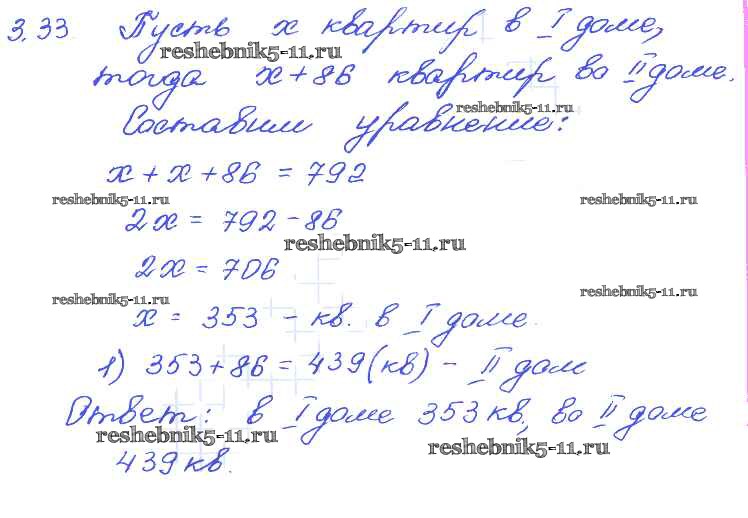 3.33 Пусть x квартир в I доме,
reshebnik5-11.ru
тогда x + 86 квартир во II доме.
reshebnik5-11.ru
Составим уравнение:
x + x + 86 = 792
reshebnik5-11.ru reshebnik5-11.ru
2x = 792 - 86
reshebnik5-11.ru
2x = 706
reshebnik5-11.ru reshebnik5-11.ru
x = 353 - кв. в I доме.
1) 353 + 86 = 439 (кв) - II дом
Ответ: в I доме 353 кв, во II доме
reshebnik5-11.ru reshebnik5-11.ru
439 кв.